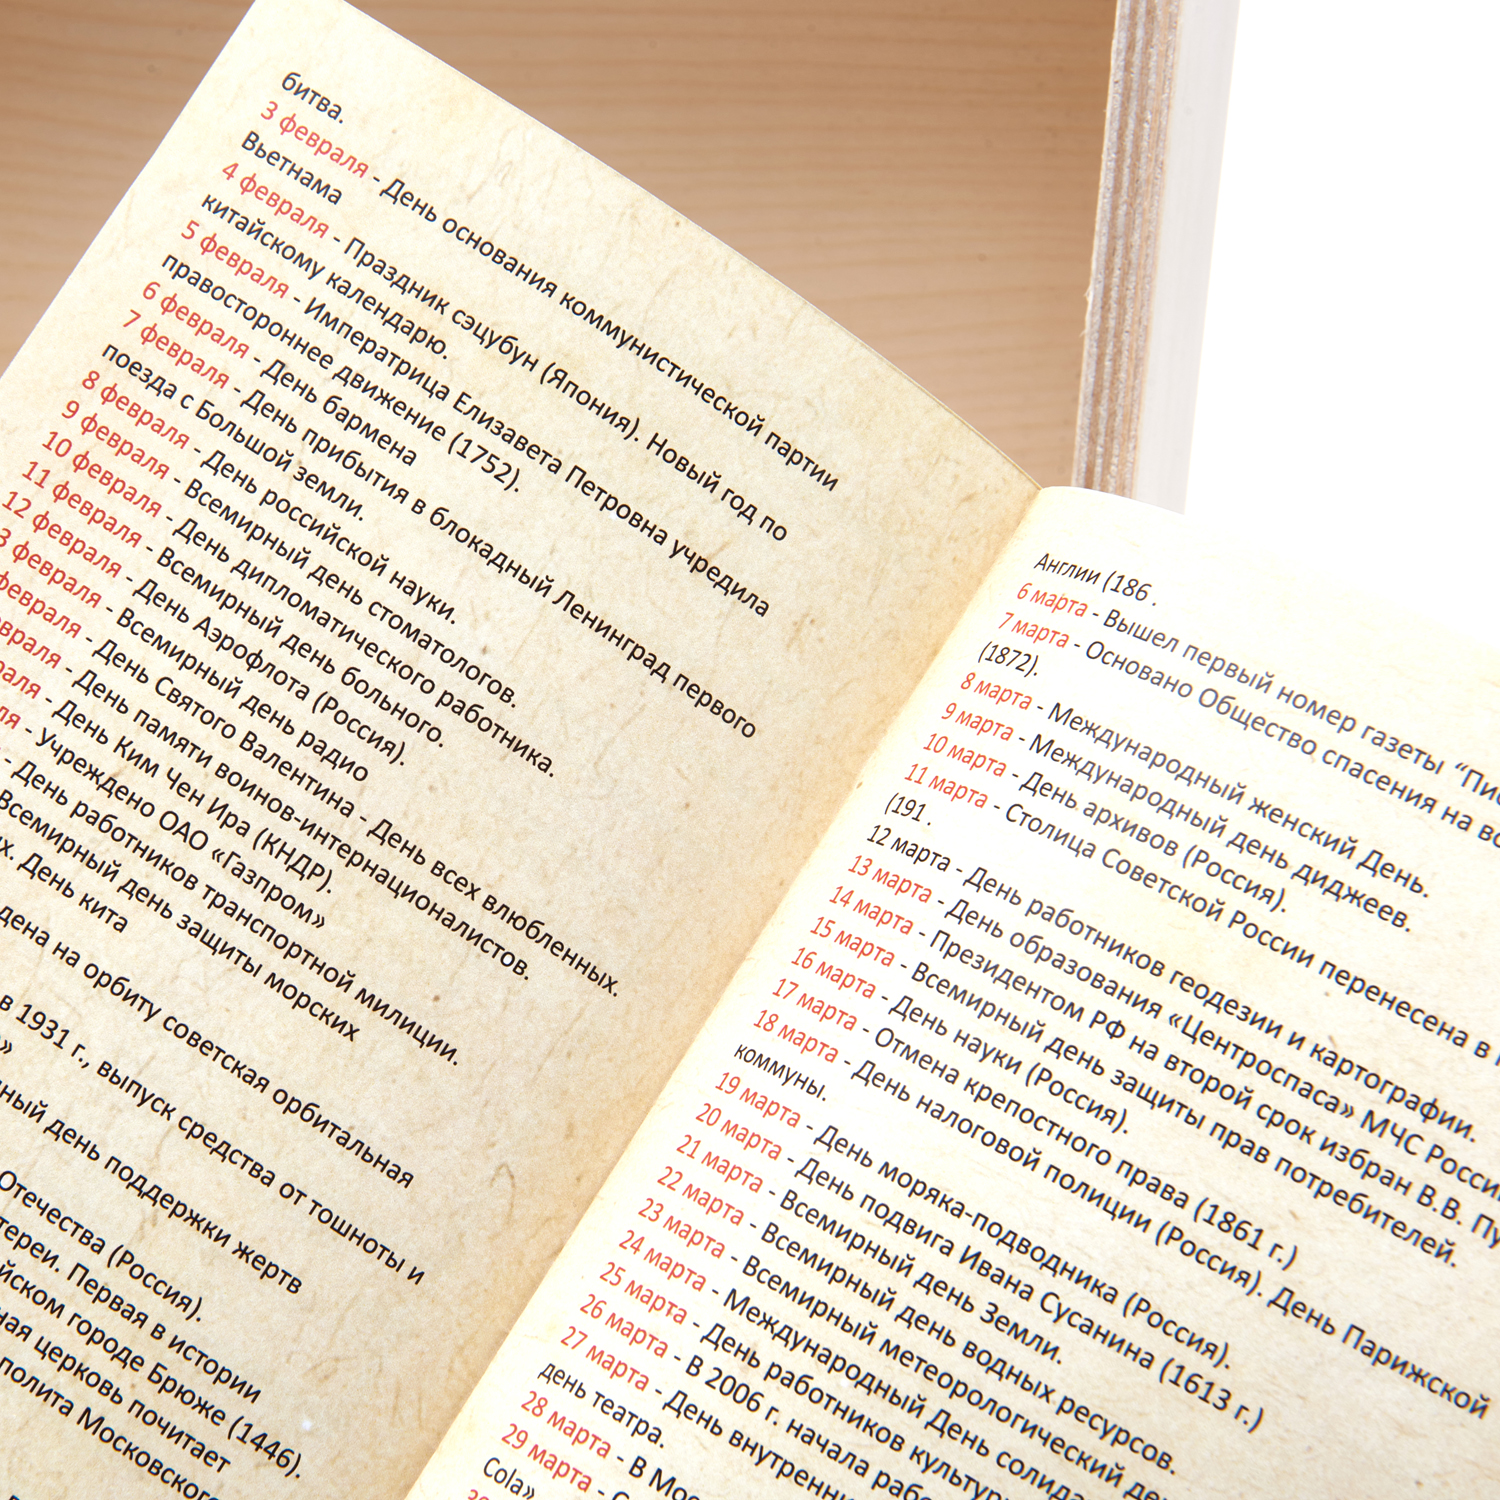 битва.
3 февраля - День основания коммунистической партии
Вьетнама
4 февраля - Праздник сэцубун (Япония). Новый год по
китайскому календарю.
5 февраля - Императрица Елизавета Петровна учредила
правостороннее движение (1752).
6 февраля - День бармена
7 февраля - День прибытия в блокадный Ленинград первого
поезда с Большой земли.
8 февраля - День российской науки.
9 февраля - Всемирный день стоматологов.
10 февраля - День дипломатического работника.
11 февраля - Всемирный день больного.
12 февраля - День Аэрофлота (Россия).
3 февраля - Всемирный день радио
февраля - День Святого Валентина - День всех влюбленных.
враля - День памяти воинов-интернационалистов.
раля - День Ким Чен Ира (КНДР).
ля - Учреждено ОАО «Газпром»
- День работников транспортной милиции.
Всемирный день защиты морских
х. День кита
дена на орбиту советская орбитальная
в 1931 г., выпуск средства от тошноты и
»
ный день поддержки жертв
Отечества (Россия).
тереи. Первая в истории
йском городе Брюже (1446).
ная церковь почитает
полита Московского
Англии (186 .
6 марта - Вышел первый номер газеты “Пио
7 марта - Основано Общество спасения на во
(1872).
8 марта - Международный женский День.
9 марта - Международный день диджеев.
10 марта - День архивов (Россия).
11 марта - Столица Советской России перенесена в
(191 .
12 марта - День работников геодезии и картографии.
13 марта - День образования «Центроспаса» МЧС Росси
14 марта - Президентом РФ на второй срок избран В.В. Пу
15 марта - Всемирный день защиты прав потребителей.
16 марта - День науки (Россия).
17 марта - Отмена крепостного права (1861 г.)
18 марта - День налоговой полиции (Россия). День Парижской
коммуны.
19 марта - День моряка-подводника (Россия).
20 марта - День подвига Ивана Сусанина (1613 г.)
21 марта - Всемирный день Земли.
22 марта - Всемирный день водных ресурсов.
23 марта - Всемирный метеорологический де
24 марта - Международный День солида
25 марта - День работников культур
26 марта - В 2006 г. начала рабо
27 марта - День внутренни
день театра.
28 марта - В Мос
29 марта - С
Cola»